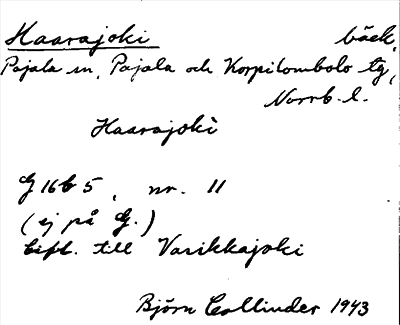 Haarajoki bäck,
Pajala sn, Pajala och Korpilombolo tg,
Norrb. l.
Haarajoki
G 16 b 5, nr. 11
(ej på G.)
till Varikkajoki
Björn Collinder 1943